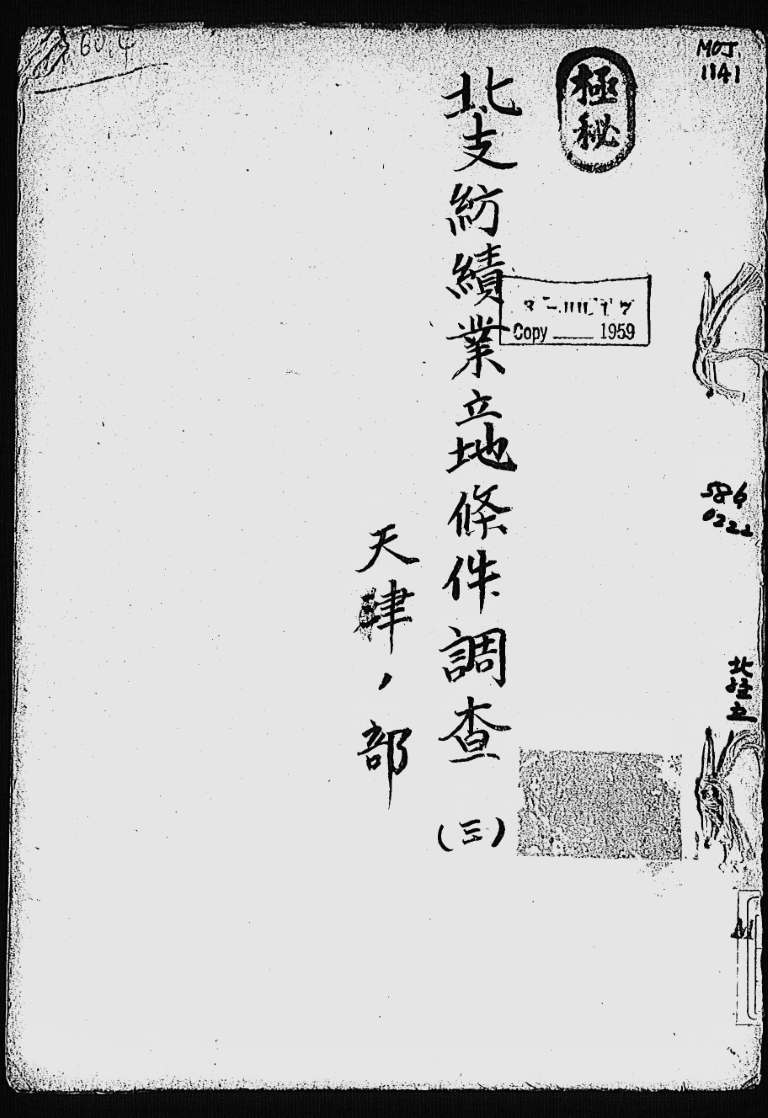 極秘
MOJ
1141
60.4
北支紡績業立地條件調査 (三)
天津ノ部
Copy 1959
586
0222
M